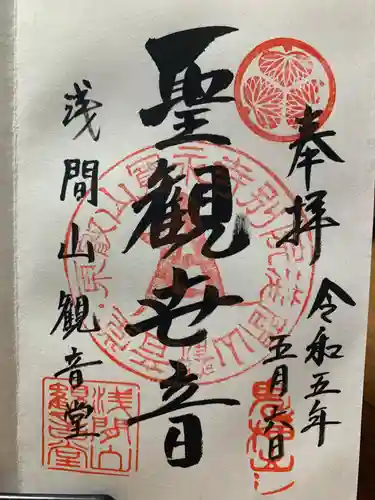 奉拝
令和五年
五月六日
聖観世音
浅間山観音堂
浅間山
観音堂